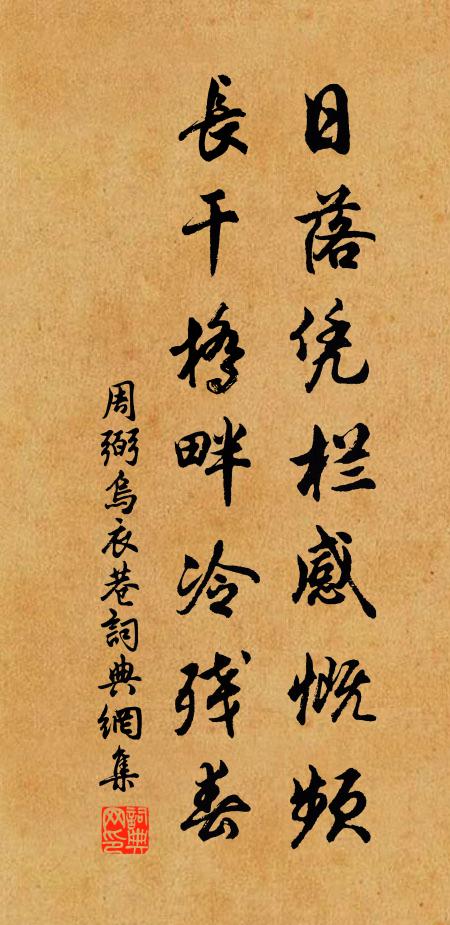 日落凭栏感慨频
長干橋畔冷残春
周弼烏衣巷詞典網集
詞典网印